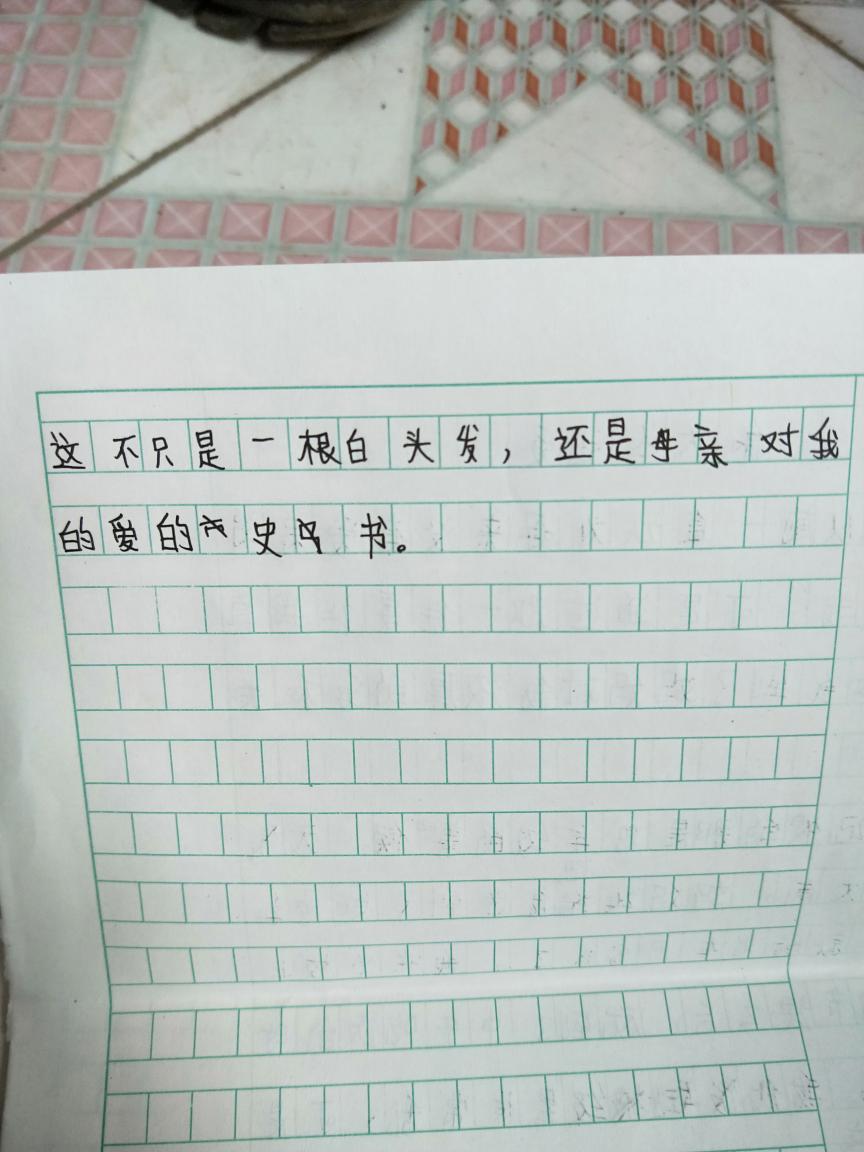 这不只是一根白头发，还是母亲对我
的爱的史书。